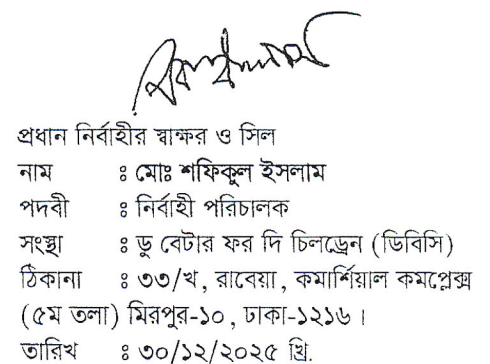 প্রধান নির্বাহীর স্বাক্ষর ও সিল
নাম : মোঃ শফিকুল ইসলাম
পদবী : নির্বাহী পরিচালক
সংস্থা : ডু বেটার ফর দি চিলড্রেন (ডিবিসি)
ঠিকানা : ৩৩/খ, রাবেয়া, কমার্শিয়াল কমপ্লেক্স
(৫ম তলা) মিরপুর-১০, ঢাকা-১২১৬।
তারিখ : ৩০/১২/২০২৫ খ্রি.